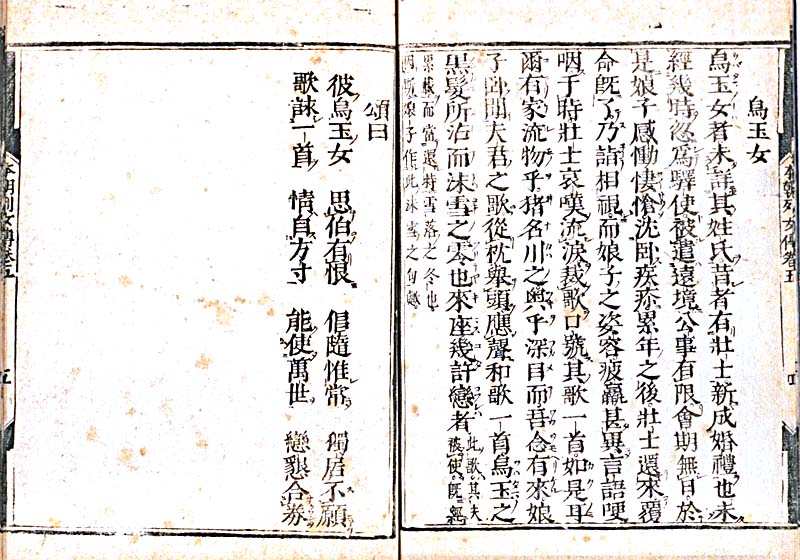 烏玉女
烏玉女者未詳其姓氏昔者有壯士新成婚禮也未
經幾時忽爲驛使被遣遠境公事有限會期無日於
是娘子感慟悽愴沈臥疾疹累年之後壯士還來覆
命既了乃詣相視而娘子之姿容疲羸甚異言語哽
咽于時壯士哀嘆流淚裁歌口號其歌一首如是耳
爾有家流物乎猪名川之奧乎深目而吾念有來娘
子臥聞夫君之歌從枕舉頭應聲和歌一首烏玉之
黒髮所沾而沫雪之零也來座幾許戀者此歌其夫
被使既經
累載而當還時雪落之冬也
因斯娘子作此沫雪之句歟
頌曰
彼烏玉女 思伯有恨 倡隨惟常 獨 不願
歌詠一首 情自方寸 能使萬世 戀懇合券
本朝列女傳卷五
五
本朝列女傳卷五
五